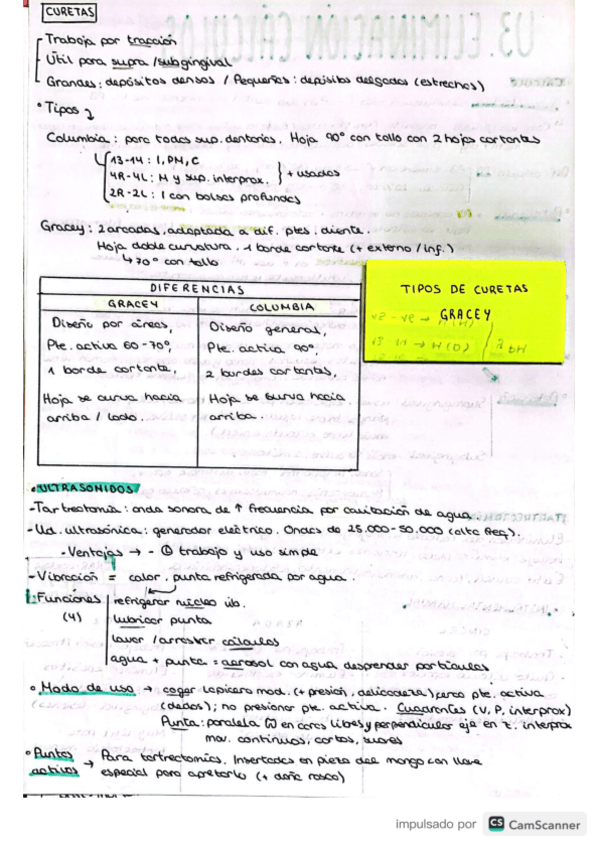 CURETAS
Trabaja por tracción
Útil para supra / subgingival
Grandes: depósitos densos / Pequeñas: depósitos delgados (estrechos)
• Tipos
Columbia: para todas sup. dentarias. Hoja 90° con tallo con 2 hojas cortantes
13-14: I, PM, C
4R-4L: M y sup. interprox. } + usados
2R-2L: I con bolsas profundas
Gracey: 2 arcadas, adaptada a dif. ptes. diente.
Hoja doble curvatura. 1 borde cortante (+ externo / inf.)
↳ 70° con tallo
DIFERENCIAS
GRACEY
Diseño por áreas,
Pte. activa 60-70°,
1 borde cortante,
Hoja se curva hacia
arriba / lado.
COLUMBIA
Diseño general,
Pte. activa 90°,
2 bordes cortantes,
Hoja se curva hacia
arriba.
TIPOS DE CURETAS
GRACEY
• ULTRASONIDOS
- Tartrectomía: onda sonora de ↑ frecuencia por cavitación de agua.
- Ud. ultrasónica: generador eléctrico. Ondas de 25.000-50.000 (alta freq).
- Ventajas → - trabajo y uso simple
- Vibración = calor. punta refrigerada por agua.
Funciones
(4)
refrigerar núcleo vib.
lubricar punta
lavar / arrastrar cálculos
agua + punta = aerosol con agua desprender partículas
• Modo de uso → coger lapicero mod. (+ presión, delicadeza) cerca pte. activa
(dedos); no presionar pte. activa. Cuadrantes (V, P, interprox)
Punta: paralela en caras libres y perpendicular eje en t. interprox
mov. continuos, cortos, suaves
• Puntas activas → Para tartrectomías. Insertadas en pieza del mango con llave
especial para apretarlo (+ daña rosca)
impulsado por CS CamScanner